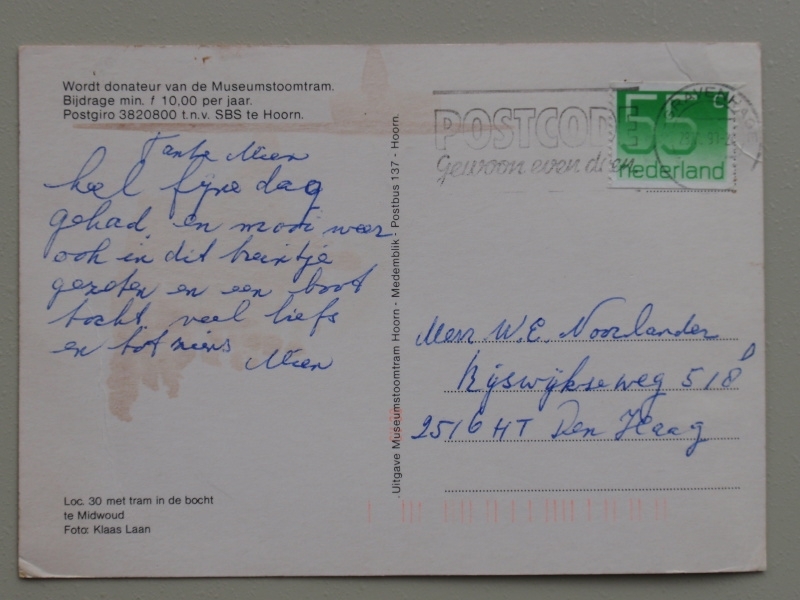 Wordt donateur van de Museumstoomtram.
Bijdrage min. f 10,00 per jaar.
Postgiro 3820800 t.n.v. SBS te Hoorn.
Tante Mien
heel fijne dag
gehad, en mooi weer
ook in dit treintje
gezeten en een boot
tocht veel liefs
en tot ziens
Mien
Loc. 30 met tram in de bocht
te Midwoud
Foto: Klaas Laan
Uitgave Museumstoomtram Hoorn - Medemblik - Postbus 137 - Hoorn.
POSTCODE
Gewoon even doen
55 c
nederland
Mevr W.E. Noorlander
Rijswijkseweg 518
2516 HT Den Haag